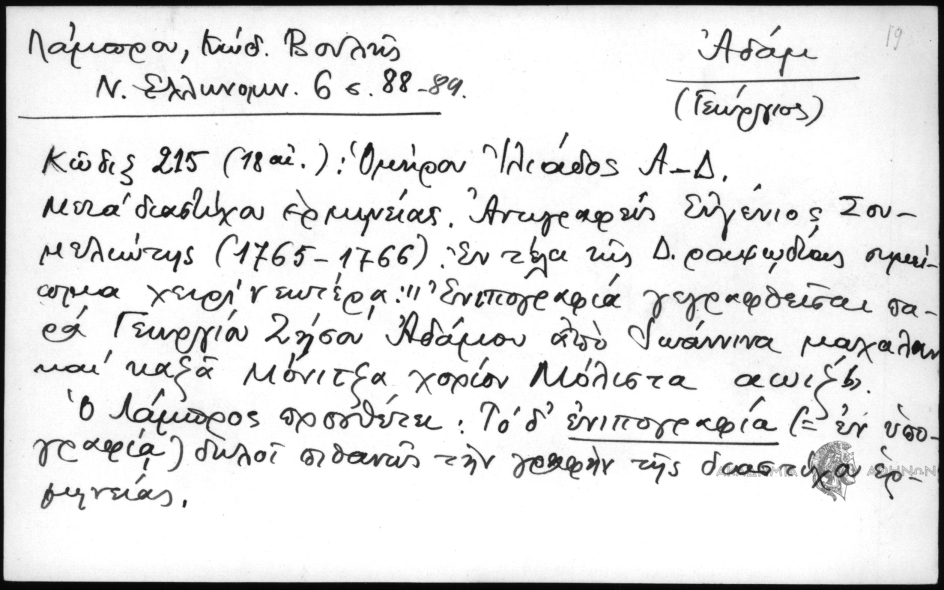 Λάμπρου, Κώδ. Βουλῆς
Ν. Ἑλληνομν. 6 σ. 88-89.
19
Ἀδάμ
(Γεώργιος)
Κῶδιξ 215 (18 αἰ.): Ὁμήρου Ἰλιάδος Α-Δ.
μετὰ διαστίχου ἑρμηνείας. Ἀντιγραφεὺς Εὐγένιος Σου-
μελιώτης (1765-1766). Ἐν τέλει τῆς Δ. ραψῳδίας σημεί-
ωμα χειρὶ νεωτέρᾳ: "Ἐνιπογραφία γεγραφθεῖσαι πα-
ρὰ Γεωργίου Ζήσου Ἀδάμου ἀπὸ Ἰωάννινα μαχαλαν
καὶ καζᾶ Μόνιτζα χορίον Μόλιστα αωιζ').
Ὁ Λάμπρος προσθέτει: Τὸ δ' ἐνιπογραφία (= ἐν ὑπο-
γραφίᾳ) δηλοῖ πιθανῶς τὴν γραφὴν τῆς διαστίχου ἑρ-
μηνείας.
ΑΚΑΔΗΜΙΑ ΑΘΗΝΩΝ